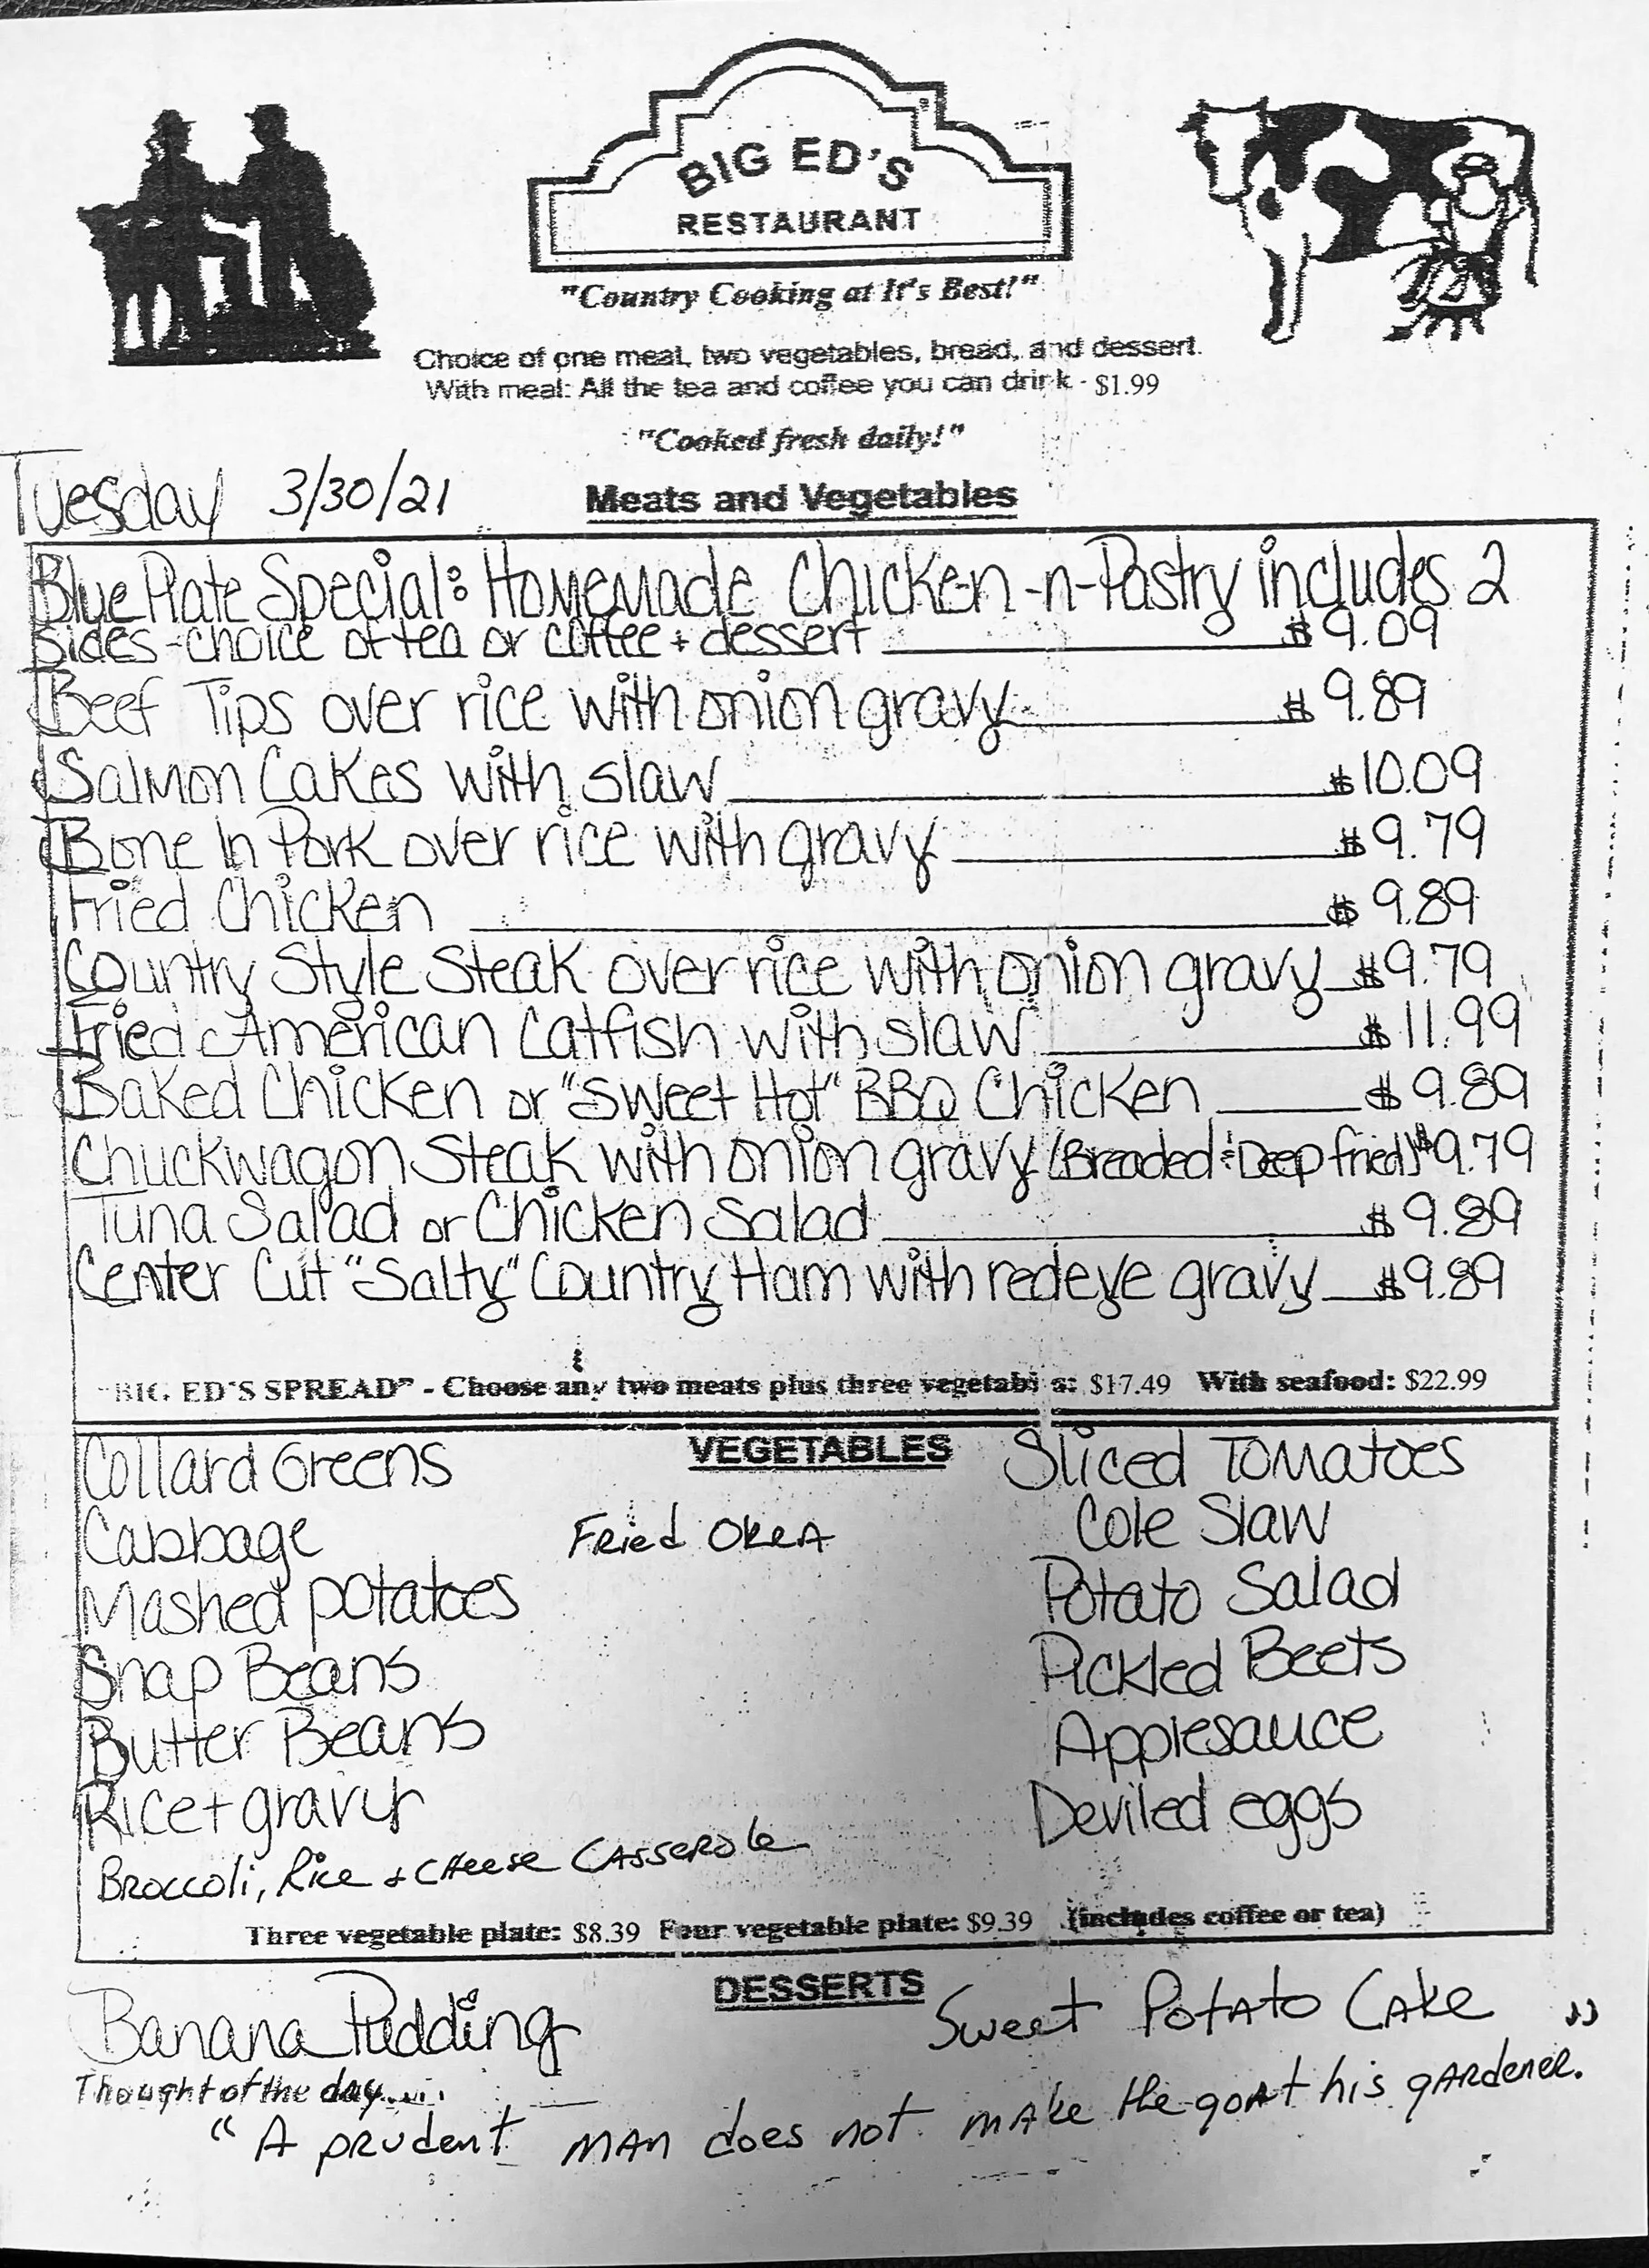 BIG ED'S
RESTAURANT
"Country Cooking at It's Best!"
Choice of one meat, two vegetables, bread, and dessert.
With meal: All the tea and coffee you can drink - $1.99
"Cooked fresh daily!"
Tuesday 3/30/21
Meats and Vegetables
Blue Plate Special: Homemade Chicken-n-Pastry includes 2
sides - choice of tea or coffee + dessert $9.09
Beef Tips over rice with onion gravy $9.89
Salmon Cakes with slaw $10.09
Bone In Pork over rice with gravy $9.79
Fried Chicken $9.89
Country Style Steak over rice with onion gravy $9.79
Fried American Catfish with slaw $11.99
Baked Chicken or "Sweet Hot" BBQ Chicken $9.89
Chuckwagon Steak with onion gravy (Breaded & Deep fried) $9.79
Tuna Salad or Chicken Salad $9.89
Center Cut "Salty" Country Ham with redeye gravy $9.89
"BIG ED'S SPREAD" - Choose any two meats plus three vegetables: $17.49 With seafood: $22.99
VEGETABLES
Collard Greens
Cabbage
Mashed potatoes
Snap Beans
Butter Beans
Rice + gravy
Broccoli, Rice + Cheese Casserole
Fried Okra
Sliced Tomatoes
Cole Slaw
Potato Salad
Pickled Beets
Applesauce
Deviled eggs
Three vegetable plate: $8.39 Four vegetable plate: $9.39 (includes coffee or tea)
DESSERTS
Banana Pudding
Sweet Potato Cake
Thought of the day.....
"A prudent man does not make the goat his gardener."